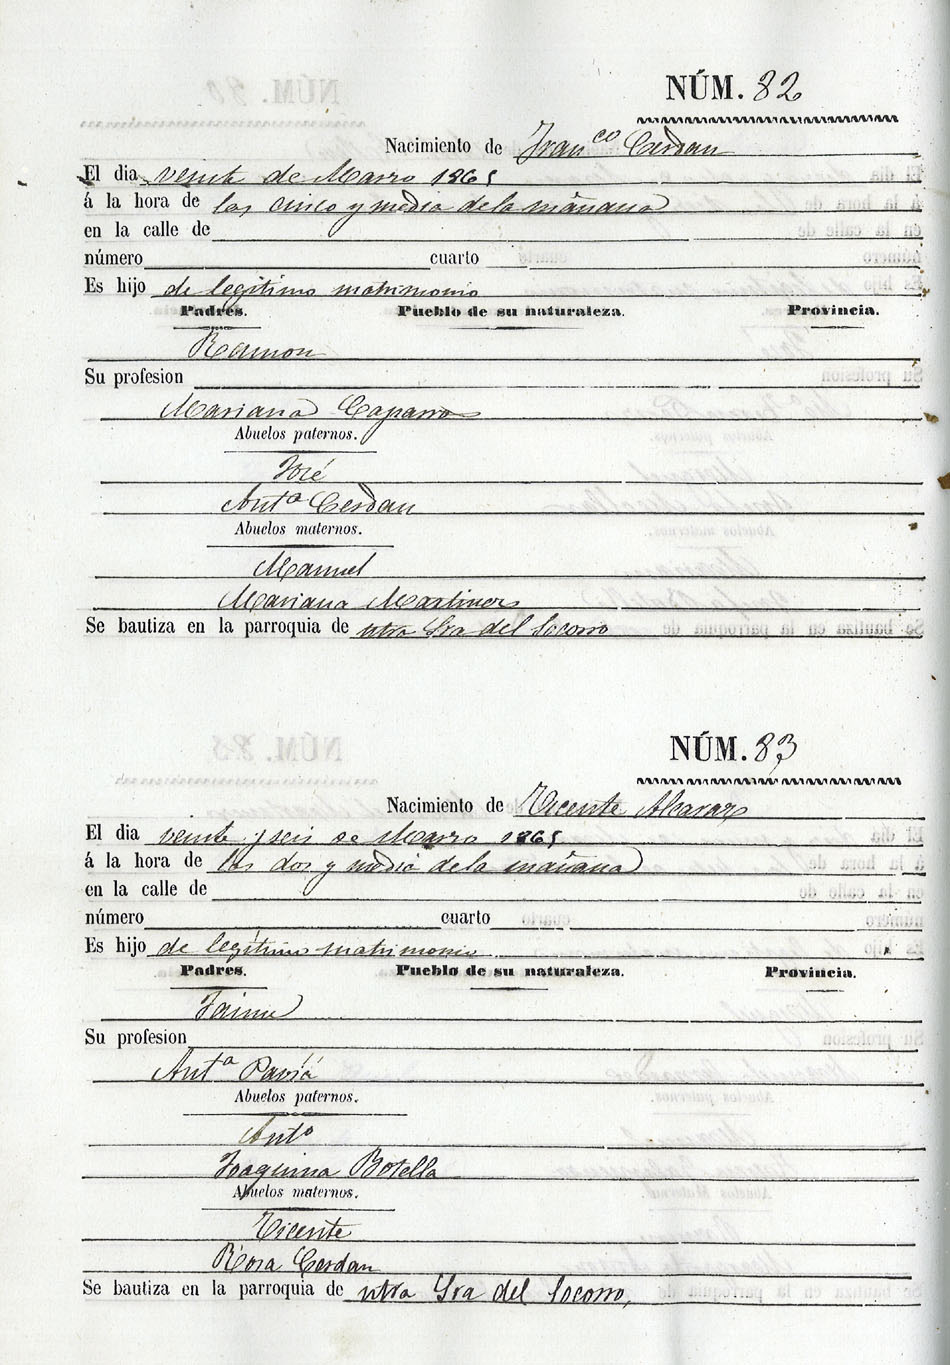 NÚM. 82
Nacimiento de Franco Cerdan
El dia veinte de Marzo 1865
á la hora de las cinco y media de la mañana
en la calle de
número cuarto
Es hijo de legitimo matrimonio
Padres. Pueblo de su naturaleza. Provincia.
Ramon
Su profesion
Mariana Caparros
Abuelos paternos.
José
Anta Cerdan
Abuelos maternos.
Manuel
Mariana Martinez
Se bautiza en la parroquia de ntra Sra del Socorro
NÚM. 83
Nacimiento de Vicente Alcaraz
El dia veinte y seis de Marzo 1865
á la hora de las dos y media de la mañana
en la calle de
número cuarto
Es hijo de legitimo matrimonio
Padres. Pueblo de su naturaleza. Provincia.
Jaime
Su profesion
Anta Paviá
Abuelos paternos.
Anto
Joaquina Botella
Abuelos maternos.
Vicente
Rosa Cerdan
Se bautiza en la parroquia de ntra Sra del Socorro,